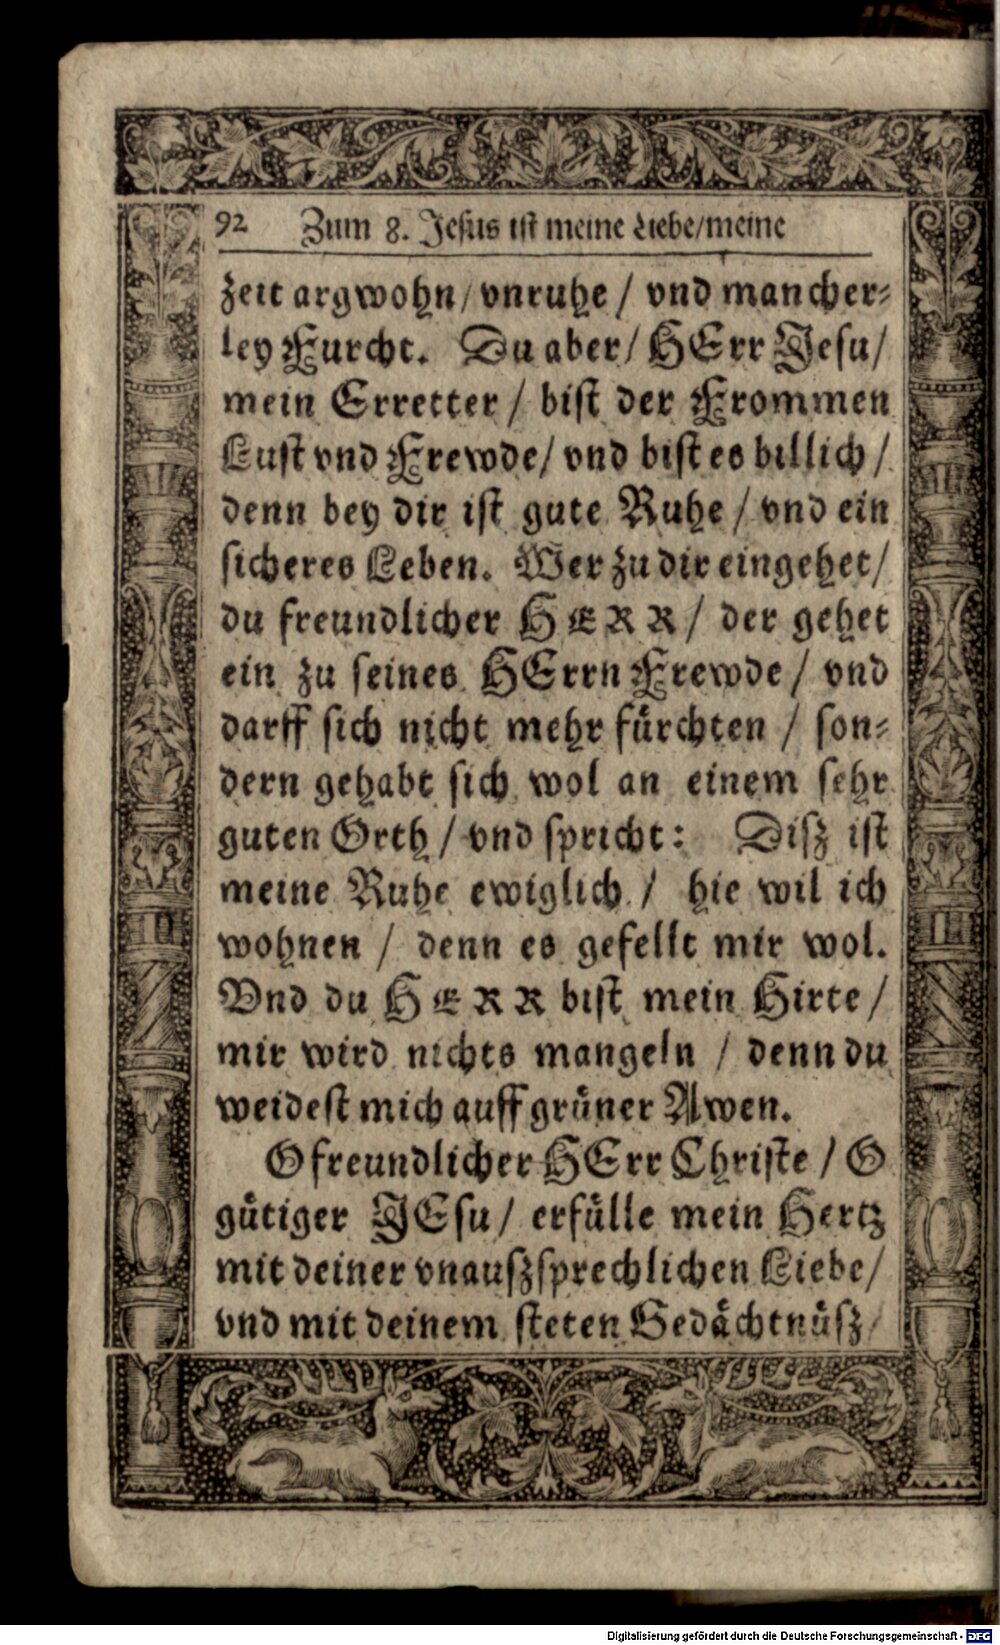 92 Zum 8. Jesus ist meine Liebe/meine
zeit argwohn/ vnruhe / vnd mancher-
ley Furcht. Du aber/ HErr Jesu/
mein Erretter / bist der Frommen
Lust vnd Frewde/ vnd bist es billich /
denn bey dir ist gute Ruhe / vnd ein
sicheres Leben. Wer zu dir eingehet/
du freundlicher HERR/ der gehet
ein zu seines HErrn Frewde / vnd
darff sich nicht mehr fürchten / son-
dern gehabt sich wol an einem sehr
guten Orth / vnd spricht: Disz ist
meine Ruhe ewiglich / hie wil ich
wohnen / denn es gefellt mir wol.
Vnd du HERR bist mein Hirte /
mir wird nichts mangeln / denn du
weidest mich auff grüner Awen.
O freundlicher HErr Christe / O
gütiger JEsu/ erfülle mein Hertz
mit deiner vnauszsprechlichen Liebe/
vnd mit deinem steten Gedächtnüsz/
Digitalisierung gefördert durch die Deutsche Forschungsgemeinschaft - DFG